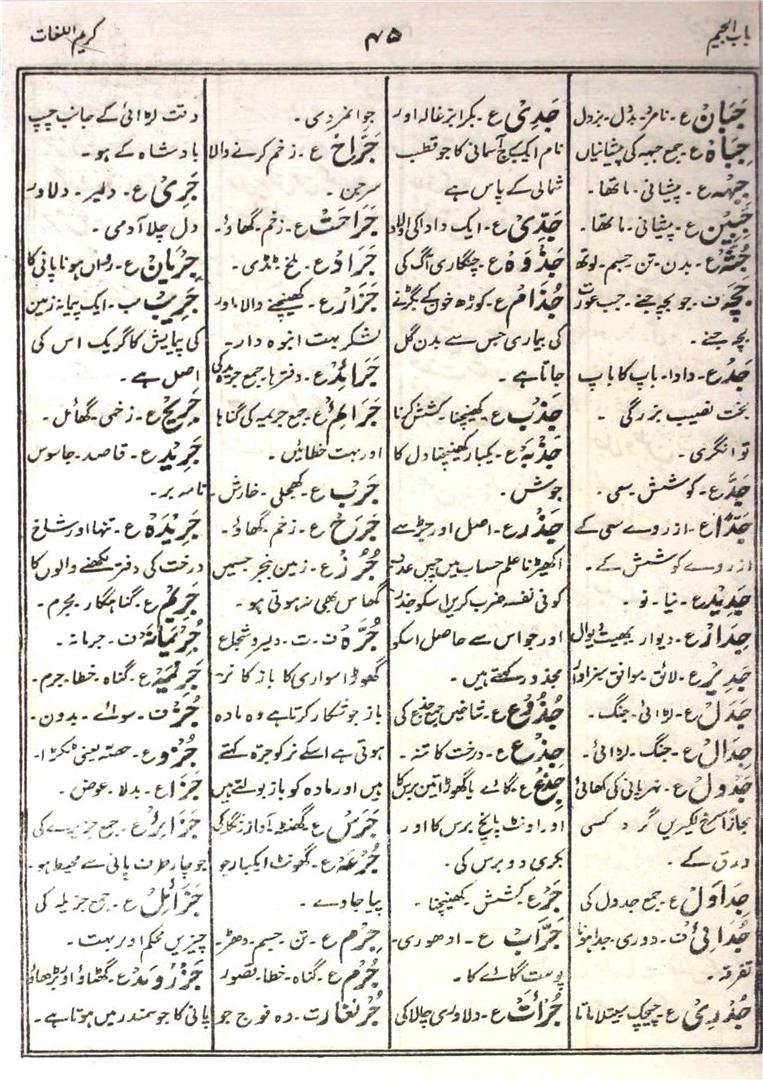 باب الجیم
۴۵
کریم اللغات
جَبَانْ ع۔ نامرد۔ بُزدل۔ بزدل
جِبَاہْ ع۔ جمع جبہہ کی پیشانیاں
جَبْہہ ع۔ پیشانی۔ ماتھا۔
جَبِیْن ع۔ پیشانی۔ ماتھا۔
جُثَّہْ ع۔ بدن۔ تن۔ جسم۔ لوتھ
جَچَّہ ف۔ جو بچہ جنے۔ جب عورت
بچہ جنے۔
جَدّ ع۔ دادا۔ باپ کا باپ
بخت نصیب بزرگی۔
توانگری۔
جِدّ ع۔ کوشش۔ سعی۔
جِدًّا ع۔ ازروے سعی کے
ازروے کوشش کے۔
جَدِیْد ع۔ نیا۔ نو۔
جِدَارْ ع۔ دیوار۔ بھیت۔ دیوال
جَدِیْر ع۔ لائق۔ موافق۔ سزاوار
جَدَلْ ع۔ لڑائی۔ جنگ۔
جِدَالْ ع۔ جنگ۔ لڑائی۔
جَدْوَلْ ع۔ نہر پانی کی کھائی
مجازاً سرخ لکیریں گرد کسی
ورق کے۔
جَدَاوِلْ ع۔ جمع جدول کی
جُدَائِیْ ف۔ دوری۔ جدا ہونا
تفرقہ۔
جُدَرِیْ ع۔ چیچک۔ سیتلا ماتا
جَدِیْ ع۔ بکرا بزغالہ اور
نام ایک برج آسمانی کا جو قطب
شمالی کے پاس ہے
جَدِّیْ ع۔ ایک دادا کی اولاد
جَذْوَہْ ع۔ چنگاری آگ کی
جُذَامْ ع۔ کوڑھ خون کے بگڑنے
کی بیماری جس سے بدن گل
جاتا ہے۔
جَذْب ع۔ کھینچنا۔ کشش کرنا
جَذْبَہْ ع۔ یکبار کھینچنا دل کا
جوش۔
جَذْر ع۔ اصل اور جڑ سے
اکھیڑنا علم حساب میں جس عدد
کو فی نفسہ ضرب کریں اسکو جذر
اور جو اس سے حاصل اسکو
مجذور کہتے ہیں۔
جُذُوْع ع۔ شاخیں جمع جذع کی
جِذْع ع۔ درخت کا تنہ۔
جَذَعْ ع۔ گائے یا گھوڑا تین برس کا
اور اونٹ پانچ برس کا اور
بکری دو برس کی۔
جَرّ ع۔ کشش۔ کھینچنا۔
جِرَابْ ع۔ ادھوری۔
پوست گائے کا۔
جُرْأَتْ ع۔ دلاوری چالاکی
جوانمردی۔
جَرَّاحْ ع۔ زخم کرنے والا
سرجن۔
جَرَاحَتْ ع۔ زخم۔ گھاؤ۔
جَرَادْ ع۔ ملخ۔ ٹڈی۔
جَرَّارْ ع۔ کھینچنے والا۔ اور
لشکر بہت انبوہ دار۔
جَرَائِدْ ع۔ دفترہا جمع جریدہ کی
جَرَائِمْ ع۔ جمع جریمہ کی گناہا
اور بہت خطائیں۔
جَرَبْ ع۔ کھجلی۔ خارش۔
جَرْحْ ع۔ زخم۔ گھاؤ۔
جُرُزْ ع۔ زمین بنجر جسمیں
گھاس بھی نہ ہوتی ہو۔
جُرَّہْ ف۔ ت۔ دلیر و شجاع
گھوڑا سواری کا باز کا نر۔
باز جو شکار کرتا ہے وہ مادہ
ہوتی ہے اسکے نر کو جرّہ کہتے
ہیں اور مادہ کو باز بولتے ہیں
جَرَسْ ع۔ گھنٹہ آواز زنگلہ کی
جُرْعَہْ ع۔ گھونٹ ایکبار جو
پیا جاوے۔
جِرْم ع۔ تن۔ جسم۔ دھڑ۔
جُرْم ع۔ گناہ۔ خطا۔ قصور
جُرْنْغَارْ ت۔ وہ فوج جو
وقت لڑائی کے جانب چپ
بادشاہ کے ہو۔
جَرِیْ ع۔ دلیر۔ دلاور
دل چلا آدمی۔
جَرَیَانْ ع۔ رواں ہونا پانی کا
جَرِیْبْ مب۔ ایک پیمانہ زمین
کی پیمایش کا گریک اس کی
اصل ہے۔
جَرِیْح ع۔ زخمی۔ گھائل۔
جَرِیْد ع۔ قاصد۔ جاسوس
نامہ بر۔
جَرِیْدَہْ ع۔ تنہا اور شاخ
درخت کی دفتر لکھنے والوں کا
جَرِیْم ع۔ گناہگار۔ مجرم۔
جُرْمَانَہْ ف۔ جرمانہ۔
جَرِیْمَہْ ع۔ گناہ۔ خطا۔ جرم۔
جُزْ ف۔ سوائے۔ بدون۔
جُزْو ع۔ حصہ یعنی ٹکڑا۔
جَزَا ع۔ بدلا۔ عوض۔
جَزَائِرْ ع۔ جمع جزیرے کی
جو چار طرف پانی سے محیط ہو۔
جَزَائِلْ ع۔ جمع جزیلہ کی
چیزیں محکم اور بہت۔
جَزْرُوْمَدّ ع۔ گھٹاؤ اور بڑھاؤ
پانی کا جو سمندر میں ہوتا ہے۔